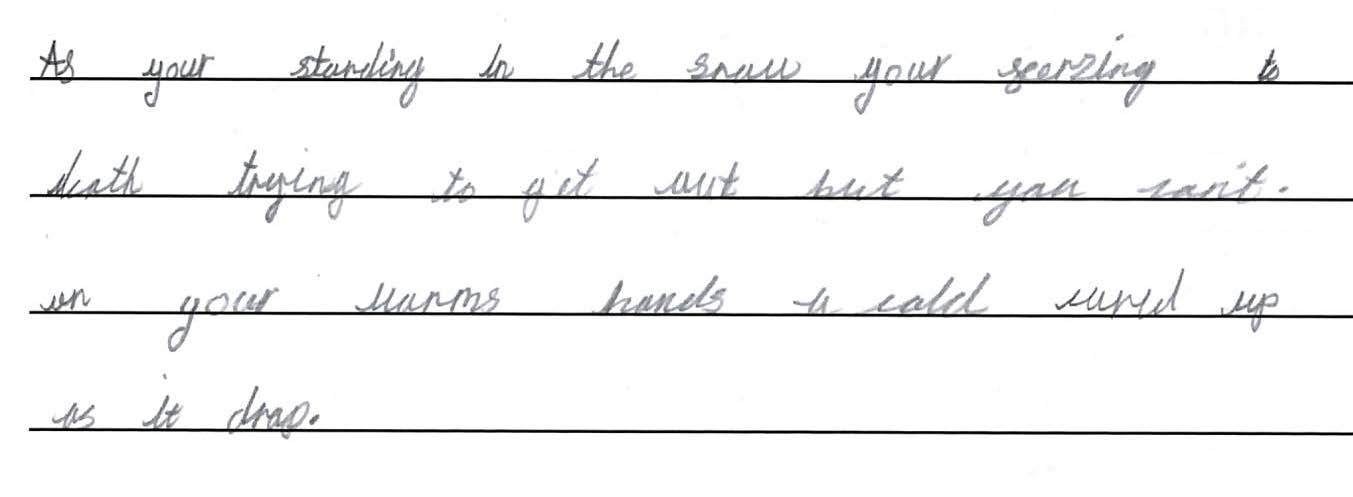 As your standing in the snow your seerzing to
death trying to get out but you can't.
on your warms hands a cold curld up
as it drop.